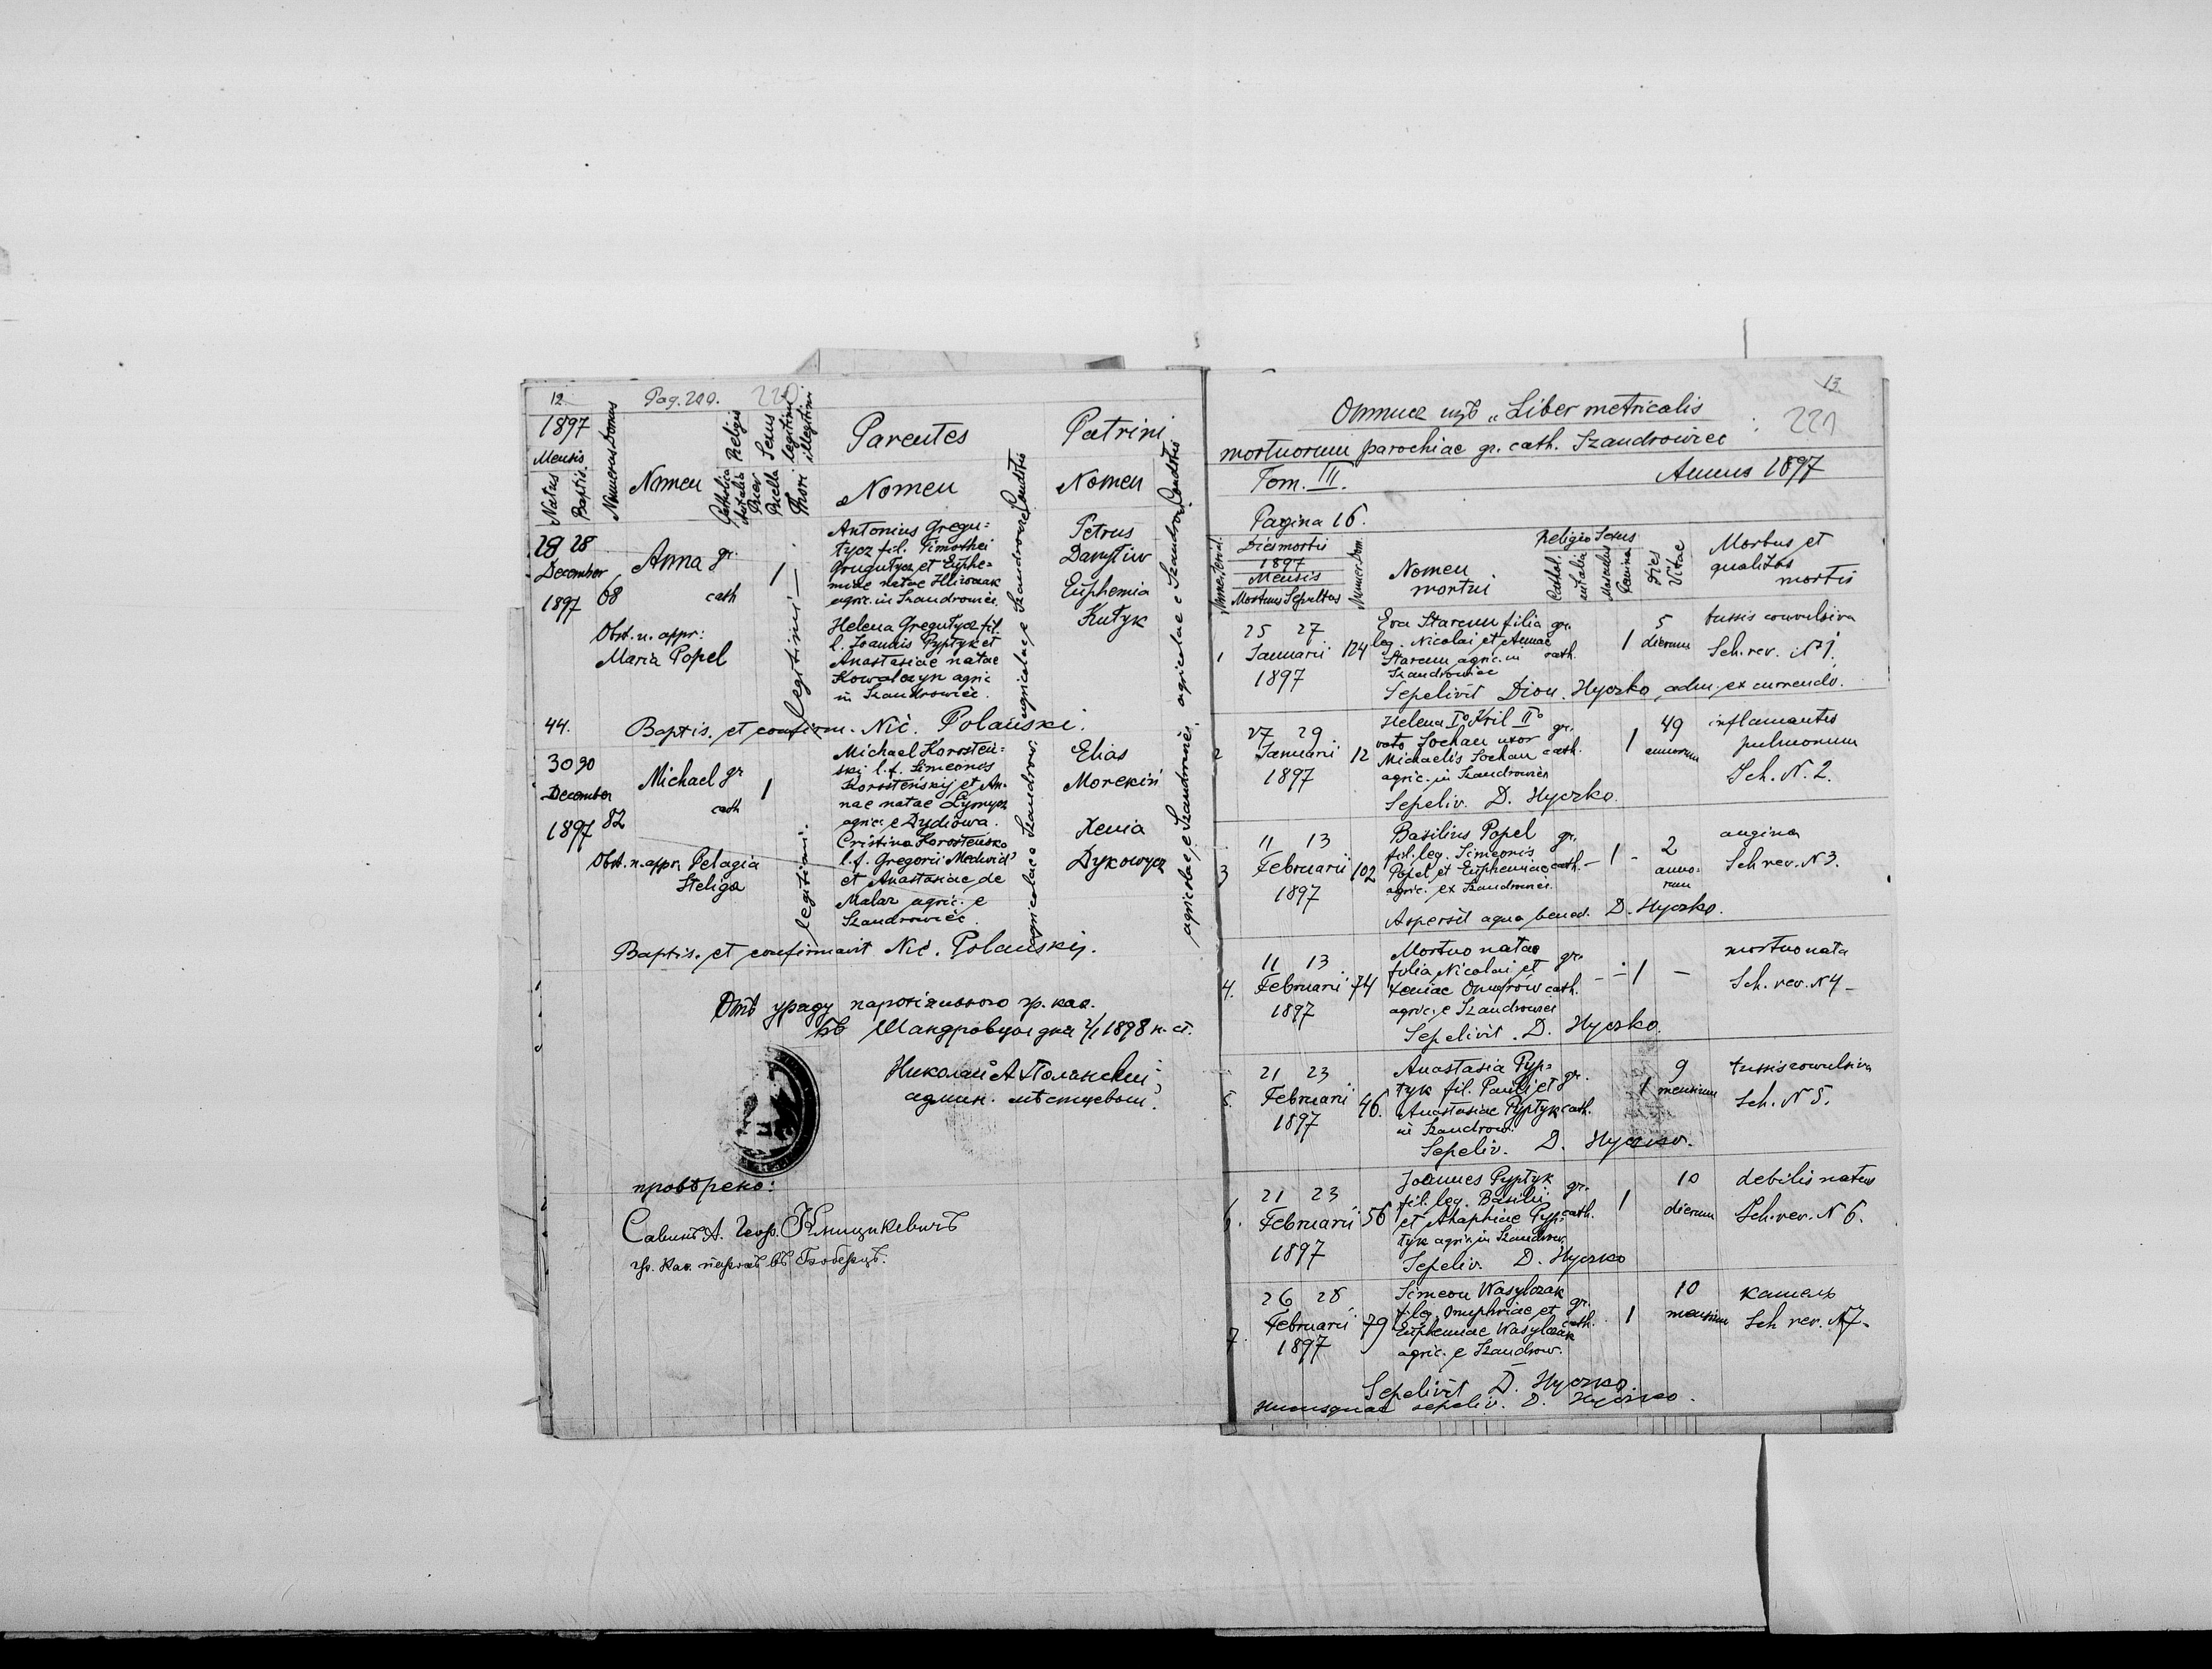 12
Pag. 219.
220.
1897
Mensis
Natus
Baptis.
Numerus Domus
Nomen
Religio
Catholica
aut alia
Sexus
Puer
Puella
Thori
legitimi
illegitimi
Parentes
Nomen
Conditio
Patrini
Nomen
Conditio
28 28
December
1897
68
Anna
gr.
cath
1
legitimi
Obst. n. appr:
Maria Popel
Antonius Gregu=
tycz fil. Timothei
Gregutycz et Euphe=
miae natae Hliwczak
agric. in Szandrowiec.
Helena Gregutycz fil.
l. Joannis Pyptyk et
Anastasiae natae
Kowalczyn agric
in Szandrowiec.
agricolae e Szandrowiec
Petrus
Danyliw
Euphemia
Kutyk
agricolae e Szandrowiec
44. Baptis. et confirm. Nic. Polański.
30 30
December
1897
82
Michael
gr
cath
1
legitimi.
Obst. n. appr. Pelagia
Steliga
Michael Korosteń=
ski l. f. Simeonis
Korosteńskij et An=
nae natae Łymycz
agric. e Dydiowa.
Cristina Korosteńska
l. f. Gregorii Medwid'
et Anastasiae de
Malar agric. e
Szandrowiec.
agricolae e Szandrow.
Elias
Morekiń
Xenia
Dykowycz
agricolae e Szandrowiec
Baptis. et confirmavit Nic. Polanskij.
Отъ уряду парохіяльного гр. кат.
въ Шандровци дня 2/1 1898 н. ст.
Николай А Полянскій
админ. мѣстцевый.
провѣрено:
Савинъ А.
гр. кат. парохъ въ
13
221
Отписъ изъ „Liber metricalis
mortuorum parochiae gr. cath. Szandrowiec
Tom. III.
Annus 1897
Pagina 16.
Dies mortis
1897
Mensis
Mortuus Sepultus
Numer. Dom.
Nomen
mortui
Religio
Cathol.
aut alia
Sexus
Masculus
Femina
Dies
Vitae
Morbus et
qualitas
mortis
1
25 27
Januarii
1897
124
Eva Starcun filia
leg. Nicolai et Annae
Starcun agric. in
Szandrowiec
gr.
cath.
1
5
dierum
tussis convulsiva
Sch. rev. № 1.
Sepelivit Dion. Hyczko adm. ex currendo.
2
27 29
Januarii
1897
12
Helena I° Kril II°
voto Sochan uxor
Michaelis Sochan
agric. in Szandrowiec
gr.
cath.
1
49
annorum
inflamantio
pulmonum
Sch. N. 2.
Sepeliv. D. Hyczko.
3
11 13
Februarii
1897
102
Basilius Popel
fil. leg. Simeonis
Popel et Euphemiae
agric. ex Szandrowiec.
gr.
cath.
1
2
anno-
rum
angina
Sch rev. N 3.
Aspersit aqua bened. D. Hyczko.
4.
11 13
Februarii
1897
74
Mortuo natae
filia Nicolai et
Xeniae Onufriów
agric. e Szandrowiec
gr.
cath.
1
mortuo nata
Sch. rev. N 4
Sepelivit. D. Hyczko.
5.
21 23
Februarii
1897
46.
Anastasia Pyp=
tyk fil. Pauli et
Anastasiae Pyptyk
in Szandrow.
gr.
cath.
1
9
mensium
tussis cowulsiva
Sch. N 5.
Sepeliv. D. Hyczko.
6.
21 23
Februarii
1897
56
Joannes Pyptyk
fil. leg. Basilii
et Ahaphiae Pyp=
tyk agric. in Szandrow.
gr.
cath.
1
10
dierum
debilis natus
Sch. rev. N 6.
Sepeliv. D. Hyczko
7.
26 28
Februarii
1897
79
Simeon Wasylczak
f. leg. Onuphriae et
Euphemiae Wasylczak
agric. e Szandrow.
gr.
cath.
1
10
mensium
кашель
Sch rev. N 7.
Sepelivit D. Hyczko
Hucusque sepeliv. D. Hyczko.